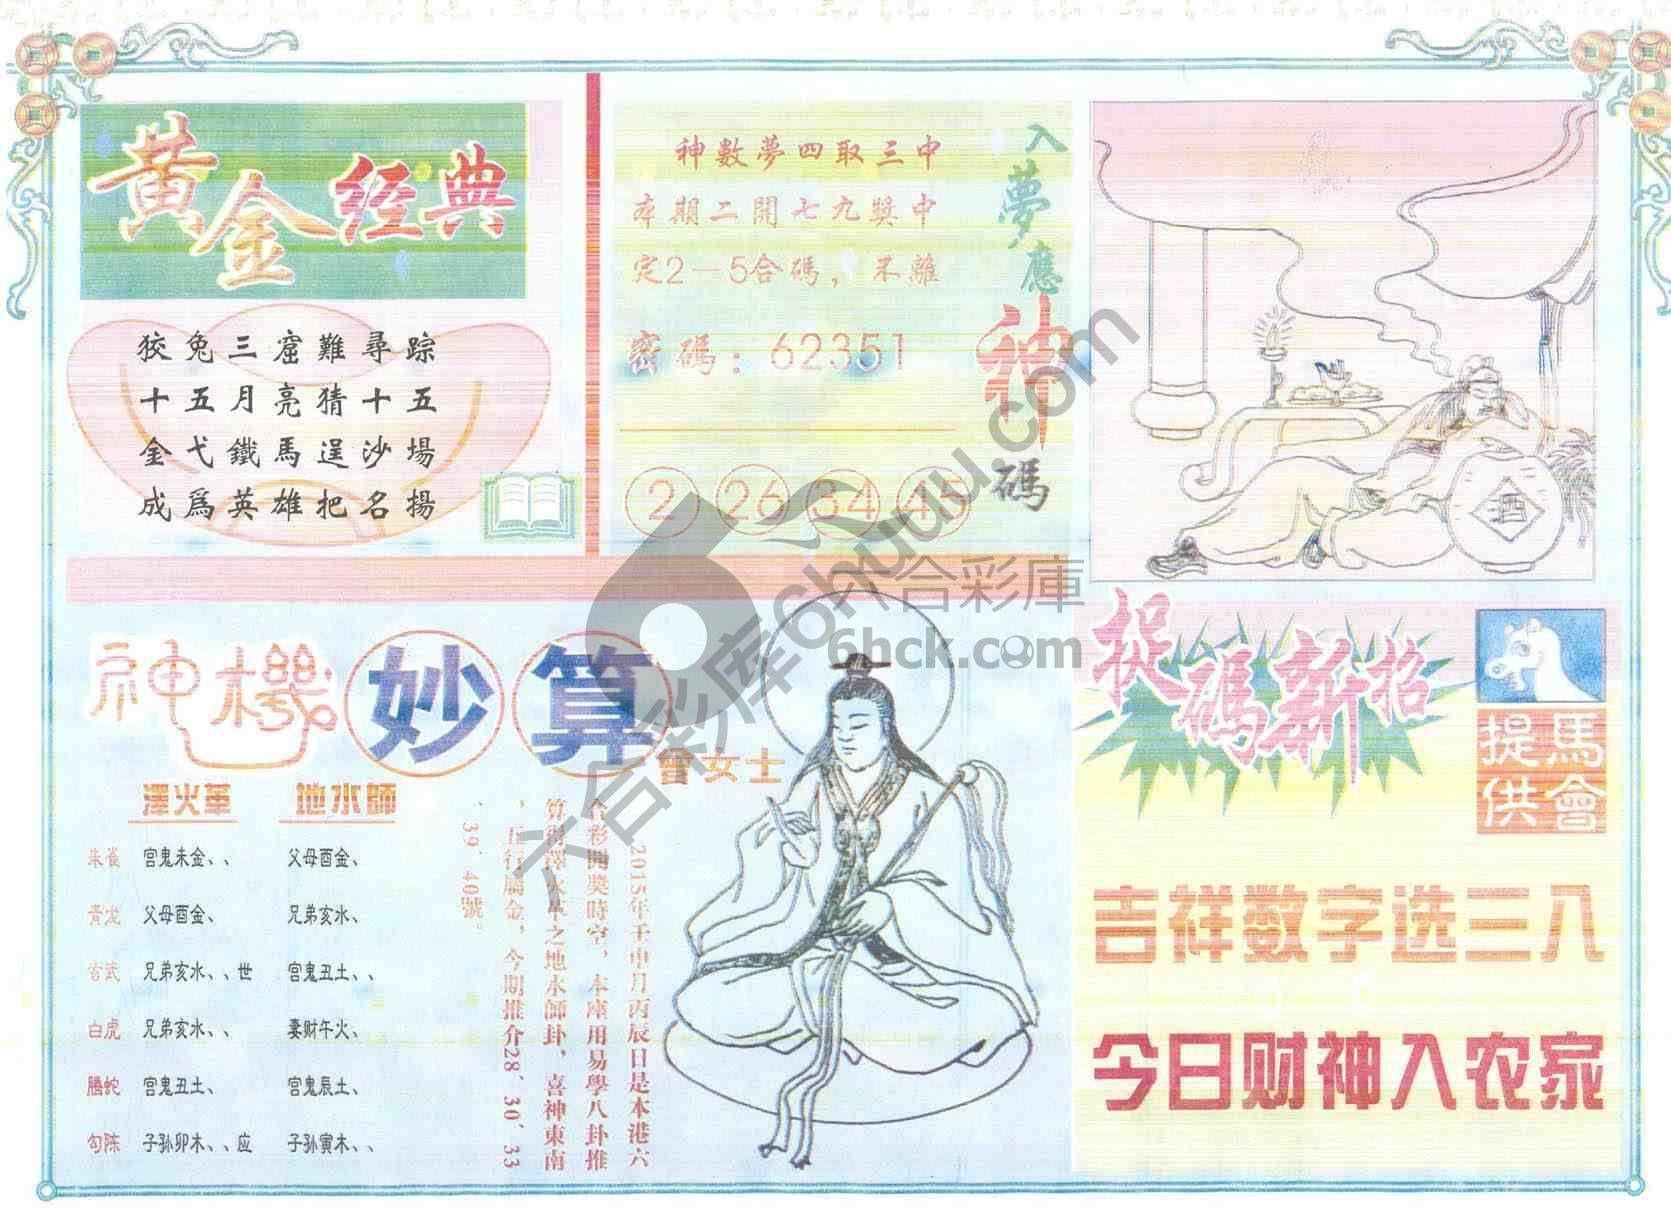 黄金经典
狡兔三窟難尋踪
十五月亮猜十五
金戈鐵馬逞沙場
成爲英雄把名揚
神數夢四取三中
本期二開七九獎中
定2—5合碼，不離
密碼：62351
2 26 34 45
入夢應神碼
酒
神機妙算
曾女士
澤火革 地水師
朱雀 宫鬼未金、、 父母酉金、
青龙 父母酉金、 兄弟亥水、
玄武 兄弟亥水、、世 宫鬼丑土、、
白虎 兄弟亥水、、 妻财午火、
騰蛇 宫鬼丑土、 宫鬼辰土、
勾陈 子孙卯木、、应 子孙寅木、、
2015年壬申月丙辰日是本港六
合彩開獎時空，本座用易學八卦推
算得澤火革之地水師卦，喜神東南
，五行屬金，今期推介28、30、33
、39、40號。
捉碼新招
馬會
提供
吉祥数字选三八
今日财神入农家
六合彩庫
6hck.com
六合彩库6hcku.com